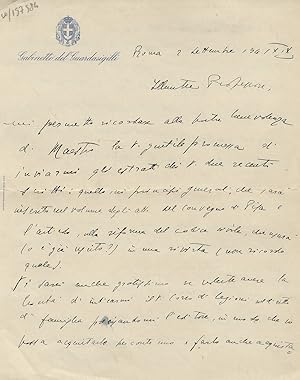 Gabinetto del Guardasigilli
Roma 2 settembre 1941 XIX
Illustre Professore,
mi permetto ricordare alla vostra benevolenza
di Maestro la V. gentile promessa di
inviarmi gli estratti di V. due recenti
scritti: quello sui principi generali, che sarà
inserito nel volume degli atti del convegno di Pisa e
l'articolo, sulla riforma del codice civile, che
(o è già uscito?) in una rivista (non ricordo
quale).
Vi sarei anche gratissimo se voleste avere la
bontà di indicarmi il Corso di lezioni
di famiglia l'editore, in modo che io
possa acquistarlo per conto mio e farlo anche acquistare